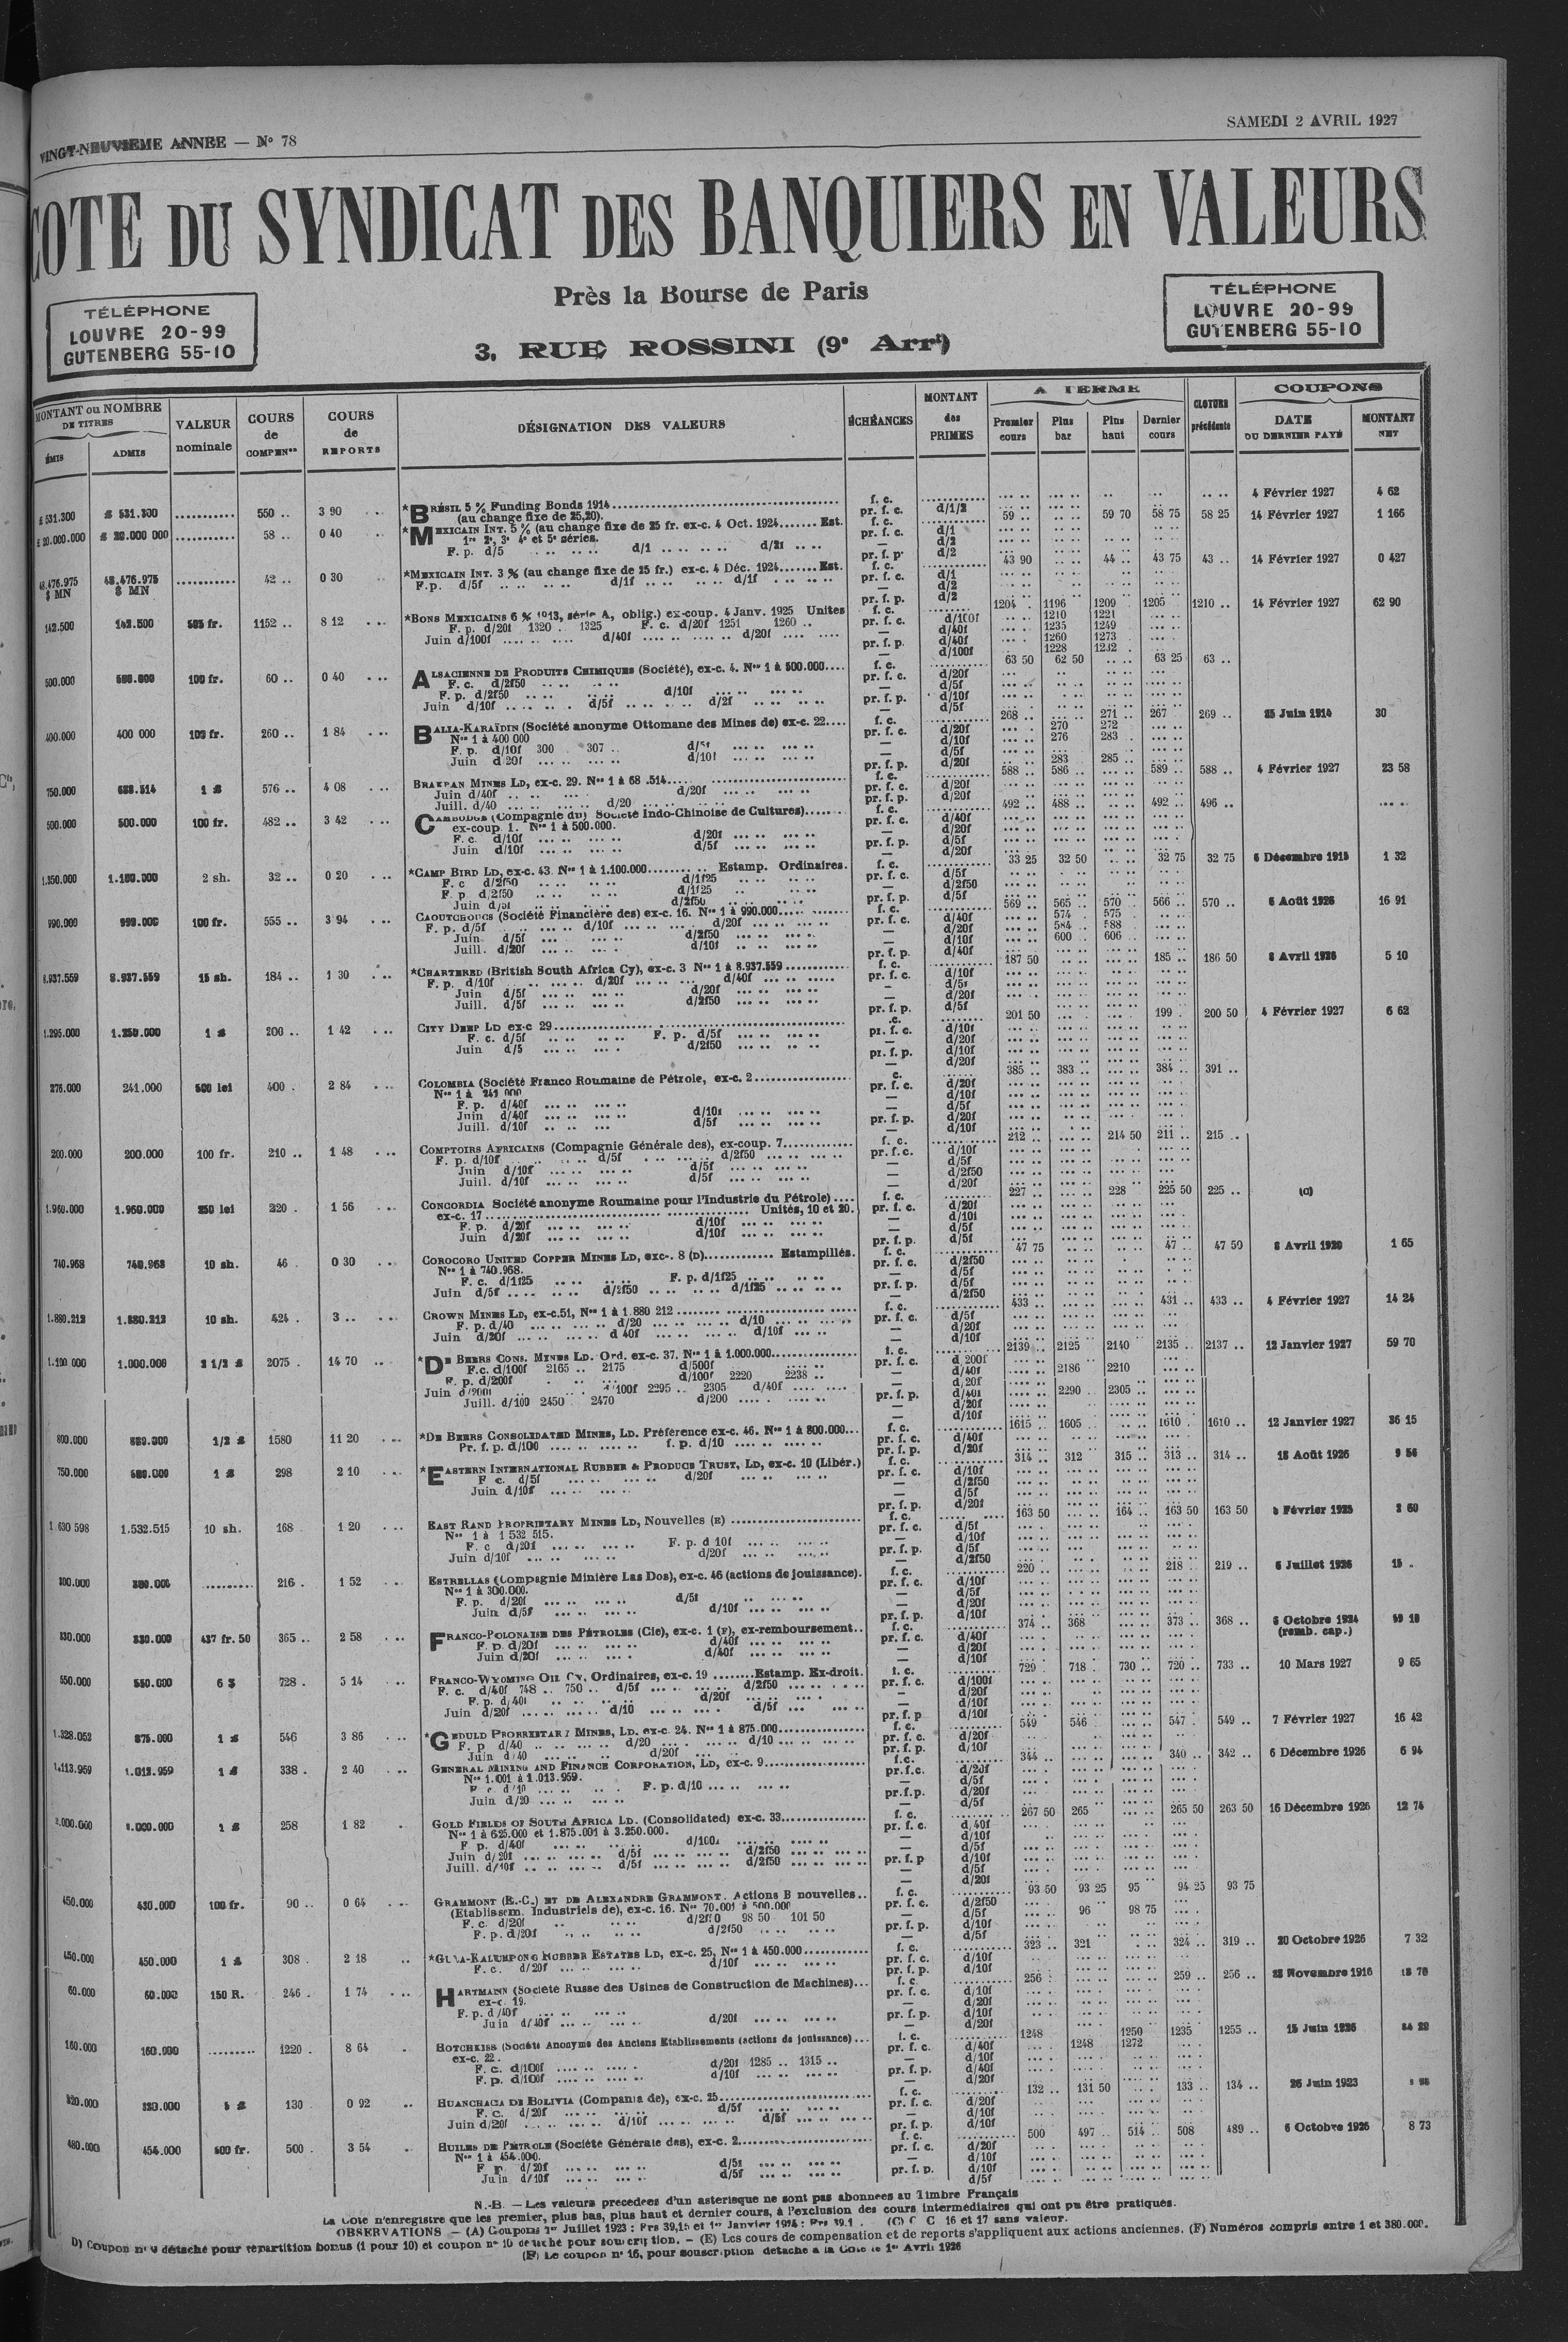 VINGT-NEUVIEME ANNEE — No 78
SAMEDI 2 AVRIL 1927
COTE DU SYNDICAT DES BANQUIERS EN VALEURS
Près la Bourse de Paris
3, RUE ROSSINI (9e Arrt)
TÉLÉPHONE
LOUVRE 20-99
GUTENBERG 55-10
TÉLÉPHONE
LOUVRE 20-99
GUTENBERG 55-10
MONTANT ou NOMBRE DE TITRES
ÉMIS ADMIS
VALEUR nominale
COURS de COMPENon
COURS de REPORTS
DÉSIGNATION DES VALEURS
ÉCHÉANCES
MONTANT des PRIMES
A TERME
Premier cours Plus bas Plus haut Dernier cours
CLOTURE précédente
COUPONS
DATE DU DERNIER PAYÉ
MONTANT NET
£ 531.300 £ 531.300 550 .. 3 90 *BRÉSIL 5 % Funding Bonds 1914 f. c. 4 Février 1927 4 62
(au change fixe de 25,20). pr. f. c. d/1/2
£ 20.000.000 £ 20.000 000 58 .. 0 40 *MEXICAIN INT. 5 % (au change fixe de 25 fr. ex-c. 4 Oct. 1924 Est. f. c. 59 .. 59 70 58 75 58 25 14 Février 1927 1 166
1re 2e, 3e 4e et 5e séries. pr. f. c. d/1
F. p. d/5 d/1 d/2
48.476.975 $ MN 48.476.975 $ MN 42 .. 0 30 *MEXICAIN INT. 3 % (au change fixe de 25 fr.) ex-c. 4 Déc. 1924 Est. f. c. 43 90 44 .. 43 75 43 .. 14 Février 1927 0 427
F.p. d/5f d/1f d/1f pr. f. c. d/1
142.500 142.500 505 fr. 1152 .. 8 12 *BONS MEXICAINS 6 % 1913, série A, oblig.) ex-coup. 4 Janv. 1925 Unités f. c. 1204 . 1196 1209 . 1205 1210 .. 14 Février 1927 62 90
F. p. d/20f 1320 .. 1325 F. c. d/20f 1251 1260 .. pr. f. c. d/100f 1210 1221
Juin d/100f d/40f d/20f d/40f 1235 1249
pr. f. p. d/40f 1260 1273
d/100f 1228 1232
500.000 500.000 100 fr. 60 .. 0 40 ALSACIENNE DE PRODUITS CHIMIQUES (Société), ex-c. 4. Nos 1 à 500.000 f. c. 63 50 62 50 63 25 63 ..
F. c. d/2f50 pr. f. c. d/20f
F. p. d/2f50 d/10f d/5f
Juin d/10f d/5f d/2f pr. f. p. d/10f
400.000 400 000 103 fr. 260 .. 1 84 BALIA-KARAÏDIN (Société anonyme Ottomane des Mines de) ex-c. 22 f. c. 268 .. 271 .. 267 269 .. 25 Juin 1914 30
Nos 1 à 400 000 pr. f. c. d/20f 270 272
F. p. d/10f 300 307 .. d/5f d/10f 276 283
Juin d 20f d/10f d/5f
pr. f. p. d/20f 283 285
750.000 688.514 1 £ 576 .. 4 08 BRAKPAN MINES LD, ex-c. 29. Nos 1 à 68 .514 f. c. 588 .. 586 .. 589 .. 588 .. 4 Février 1927 23 58
Juin d/40f d/20f pr. f. c. d/20f
Juill. d/40 d/20 pr. f. p. d/20f
500.000 500.000 100 fr. 482 .. 3 42 CAMBODGE (Compagnie du) Société Indo-Chinoise de Cultures) f. c. 492 .. 488 .. 492 .. 496 ..
ex-coup 1. Nos 1 à 500.000. pr. f. c. d/40f
F. c. d/10f d/20f d/20f
Juin d/10f d/5f pr. f. p. d/5f
1.350.000 1.100.000 2 sh. 32 .. 0 20 *CAMP BIRD LD, ex-c. 43. Nos 1 à 1.100.000 Estamp. Ordinaires. f. c. 33 25 32 50 32 75 32 75 6 Décembre 1915 1 32
F. c d/2f50 d/1f25 pr. f. c. d/5f
F. p d/2f50 d/1f25 d/2f50
Juin d/5f d/2f50 pr. f. p. d/5f
990.000 990.000 100 fr. 555 .. 3 94 CAOUTCHOUCS (Société Financière des) ex-c. 16. Nos 1 à 990.000 f. c. 569 .. 565 .. 570 .. 566 .. 570 .. 6 Août 1926 16 91
F. p. d/5f d/10f d/20f pr. f. c. d/40f 574 575
Juin d/5f d/2f50 d/20f 584 588
Juill. d/20f d/10f d/10f 600 606
8.937.559 8.937.559 15 sh. 184 .. 1 30 *CHARTERED (British South Africa Cy), ex-c. 3 Nos 1 à 8.937.559 f. c. 187 50 185 .. 186 50 8 Avril 1926 5 10
F. p. d/10f d/20f d/40f pr. f. c. d/10f
Juin d/5f d/20f d/5f
Juill. d/5f d/2f50 d/20f
1.295.000 1.250.000 1 £ 200 .. 1 42 CITY DEEP LD ex-c 29 201 50 199 . 200 50 4 Février 1927 6 62
F. c. d/5f F. p. d/5f pr. f. c. d/10f
Juin d/5 d/2f50 d/20f
276.000 241.000 500 lei 400 . 2 84 COLOMBIA (Société Franco Roumaine de Pétrole, ex-c. 2 385 .. 383 .. 384 .. 391 ..
Nos 1 à 241 000 pr. f. c. d/20f
F. p. d/40f d/10f
Juin d/40f d/10f d/5f
Juill. d/10f d/5f pr. f. p. d/20f
200.000 200.000 100 fr. 210 .. 1 48 COMPTOIRS AFRICAINS (Compagnie Générale des), ex-coup. 7 f. c. 212 .. 214 50 211 .. 215 ..
F. p. d/10f d/5f d/2f50 pr. f. c. d/10f
Juin d/10f d/5f d/5f
Juill. d/10f d/5f d/2f50
1.960.000 1.960.000 250 lei 220 . 1 56 CONCORDIA Société anonyme Roumaine pour l'Industrie du Pétrole) f. c. 227 .. 228 225 50 225 .. (C)
ex-c. 17 Unités, 10 et 20. pr. f. c. d/20f
F. p. d/20f d/10f d/10f
Juin d/20f d/10f d/5f
740.968 740.968 10 sh. 46 . 0 30 COROCORO UNITED COPPER MINES LD, exc-. 8 (D) Estampillés. f. c. 47 75 47 .. 47 50 8 Avril 1920 1 65
Nos 1 à 740.968. pr. f. c. d/2f50
F. c. d/1f25 F. p. d/1f25 d/5f
Juin d/5f d/2f50 d/1f25 pr. f. p. d/5f
1.880.212 1.880.212 10 sh. 424 . 3 .. CROWN MINES LD, ex-c.51, Nos 1 à 1.880 212 f. c. 433 .. 431 .. 433 .. 4 Février 1927 14 24
F. p. d/40 d/20 d/10 pr. f. c. d/5f
Juin d/20f d 40f d/10f d/20f
1.100 000 1.000.000 2 1/2 £ 2075 . 14 70 *DE BEERS CONS. MINES LD. Ord. ex-c. 37. Nos 1 à 1.000.000 f. c. 2139 .. 2125 2140 2135 .. 2137 .. 12 Janvier 1927 59 70
F.c. d/100f 2165 .. 2175 d/500f pr. f. c. d 200f
F. p. d/200f d/100f 2220 2238 .. d/40f 2186 2210
Juin d/200f 100f 2295 .. 2305 d/40f d/20f
Juill. d/100 2450 2470 d/200 pr. f. p. d/40f 2290 2305
800.000 1/2 £ 1580 11 20 *DE BEERS CONSOLIDATED MINES, LD. Préférence ex-c. 46. Nos 1 à 800.000 f. c. 1615 1605 1610 1610 .. 12 Janvier 1927 36 15
Pr. f. p. d/100 f. p. d/10 pr. f. c. d/40f
750.000 1 £ 298 2 10 *EASTERN INTERNATIONAL RUBBER & PRODUCE TRUST, LD, ex-c. 10 (Libér.) f. c. 314 .. 312 315 .. 313 .. 314 .. 18 Août 1926
F c. d/5f d/20f pr. f. c. d/10f
Juin d/10f d/2f50
1 630 598 1.532.515 10 sh. 168 . 1 20 EAST RAND PROPRIETARY MINES LD, Nouvelles (E) f. c. 163 50 164 .. 163 50 163 50 Février 1925
Nos 1 à 1 532 515. pr. f. c. d/5f
F. c d/20f F. p. d 10f d/10f
Juin d/10f d/20f pr. f. p. d/5f
300.000 216 . 1 52 ESTRELLAS (Compagnie Minière Las Dos), ex-c. 46 (actions de jouissance). f. c. 220 .. 218 219 .. 6 Juillet 1926 15 .
Nos 1 à 300.000. pr. f. c. d/10f
F. p. d/20f d/5f d/5f
Juin d/5f d/10f d/20f
330.000 330.000 437 fr. 50 365 .. 2 58 FRANCO-POLONAISE DES PÉTROLES (Cie), ex-c. 1 (F), ex-remboursement f. c. 374 .. 368 373 .. 368 .. Octobre 1924
(remb. cap.)
F. p. d/20f d/40f pr. f. c. d/40f
Juin d/20f d/40f d/20f
550.000 550.000 6 $ 728 . 5 14 FRANCO-WYOMING OIL Cy, Ordinaires, ex-c. 19 Estamp. Ex-droit. f. c. 729 . 718 . 730 .. 720 .. 733 .. 10 Mars 1927 9 65
F. c. d/40f 748 .. 750 .. d/5f d/2f50 pr. f. c. d/100f
F. p. d/40f d/20f d/20f
Juin d/20f d/10 d/5f d/10f
1.328.052 875.000 1 £ 546 3 86 *GEDULD PROPRIETARY MINES, LD. ex-c. 24. Nos 1 à 875.000 f. c. 549 546 547 . 549 .. 7 Février 1927 16 42
F. p d/40 d/20 d/10 pr. f. c. d/20f
Juin d/40 d/20f pr. f. p. d/10f
1.113.959 1.013.959 1 £ 338 . 2 40 GENERAL MINING AND FINANCE CORPORATION, LD, ex-c. 9 f.c. 344 .. 340 .. 342 .. 6 Décembre 1926 6 94
Nos 1.001 à 1.013.959. pr.f.c. d/20f
F. c d/10 F. p. d/10 d/5f
Juin d/20 pr.f.p. d/20f
2.000.000 1 £ 258 1 82 GOLD FIELDS OF SOUTH AFRICA LD. (Consolidated) ex-c. 33 f. c. 267 50 265 265 50 263 50 16 Décembre 1926 12 74
Nos 1 à 625.000 et 1.875.001 à 3.250.000. pr. f. c. d/40f
F. p. d/40f d/100f d/10f
Juin d/20f d/5f d/2f50 d/5f
Juill. d/10f d/5f d/2f50 pr. f. p d/10f
450.000 430.000 100 fr. 90 .. 0 64 GRAMMONT (E.-C.) ET DE ALEXANDRE GRAMMONT. Actions B nouvelles f. c. 93 50 93 25 95 94 25 93 75
(Etablissem. Industriels de), ex-c. 16. Nos 70.001 à 500.000 pr. f. c. d/2f50
F. c. d/20f d/2f50 98 50 101 50 d/5f 96 98 75
F. p. d/20f d/2f50 pr. f. p. d/10f
450.000 450.000 1 £ 308 . 2 18 *GULA-KALUMPONG RUBBER ESTATES LD, ex-c. 25, Nos 1 à 450.000 f. c. 323 .. 321 324 .. 319 .. 20 Octobre 1926 7 32
F. c. d/20f d/10f pr. f. c. d/10f
60.000 60.000 150 R. 246 . 1 74 HARTMANN (Société Russe des Usines de Construction de Machines) f. c. 256 259 .. 256 .. Novembre 1916
ex-c. 19. pr. f. c. d/10f
F. p. d/40f d/20f
Juin d/40f d/20f pr. f. p. d/10f
160.000 160.000 1220 . 8 64 HOTCHKISS (Société Anonyme des Anciens Etablissements (actions de jouissance) f. c. 1248 1250 1235 1255 .. 15 Juin 1926
ex-c. 22. pr. f. c. d/40f 1248 1272
F. c. d/100f d/20f 1285 .. 1315 .. d/10f
F. p. d/100f d/10f pr. f. p. d/40f
320.000 320.000 5 £ 130 . 0 92 HUANCHACA DE BOLIVIA (Compania de), ex-c. 25 f. c. 132 .. 131 50 133 .. 134 .. 26 Juin 1923
F. c. d/20f d/5f pr. f. c. d/20f
Juin d/20f d/10f d/5f d/10f
480.000 454.000 500 fr. 500 . 3 54 HUILES DE PÉTROLE (Société Générale des), ex-c. 2 f. c. 500 497 .. 514 .. 508 489 .. 6 Octobre 1926 8 73
Nos 1 à 454.000. pr. f. c. d/20f
F. p. d/20f d/5f d/10f
Juin d/10f d/5f pr. f. p. d/10f
N.-B. — Les valeurs précédées d'un astérisque ne sont pas abonnées au Timbre Français
La Cote n'enregistre que les premier, plus bas, plus haut et dernier cours, à l'exclusion des cours intermédiaires qui ont pu être pratiqués.
OBSERVATIONS — (A) Coupons 1er Juillet 1923 : Frs 39,15 et 1er Janvier 1924 : Frs 39.1 . (C) C C 16 et 17 sans valeur.
D) Coupon no 9 détaché pour répartition bonus (1 pour 10) et coupon no 10 détaché pour souscription. — (E) Les cours de compensation et de reports s'appliquent aux actions anciennes. (F) Numéros compris entre 1 et 380.000.
(F) Le coupon no 16, pour souscription détaché à la Cote le 1er Avril 1926